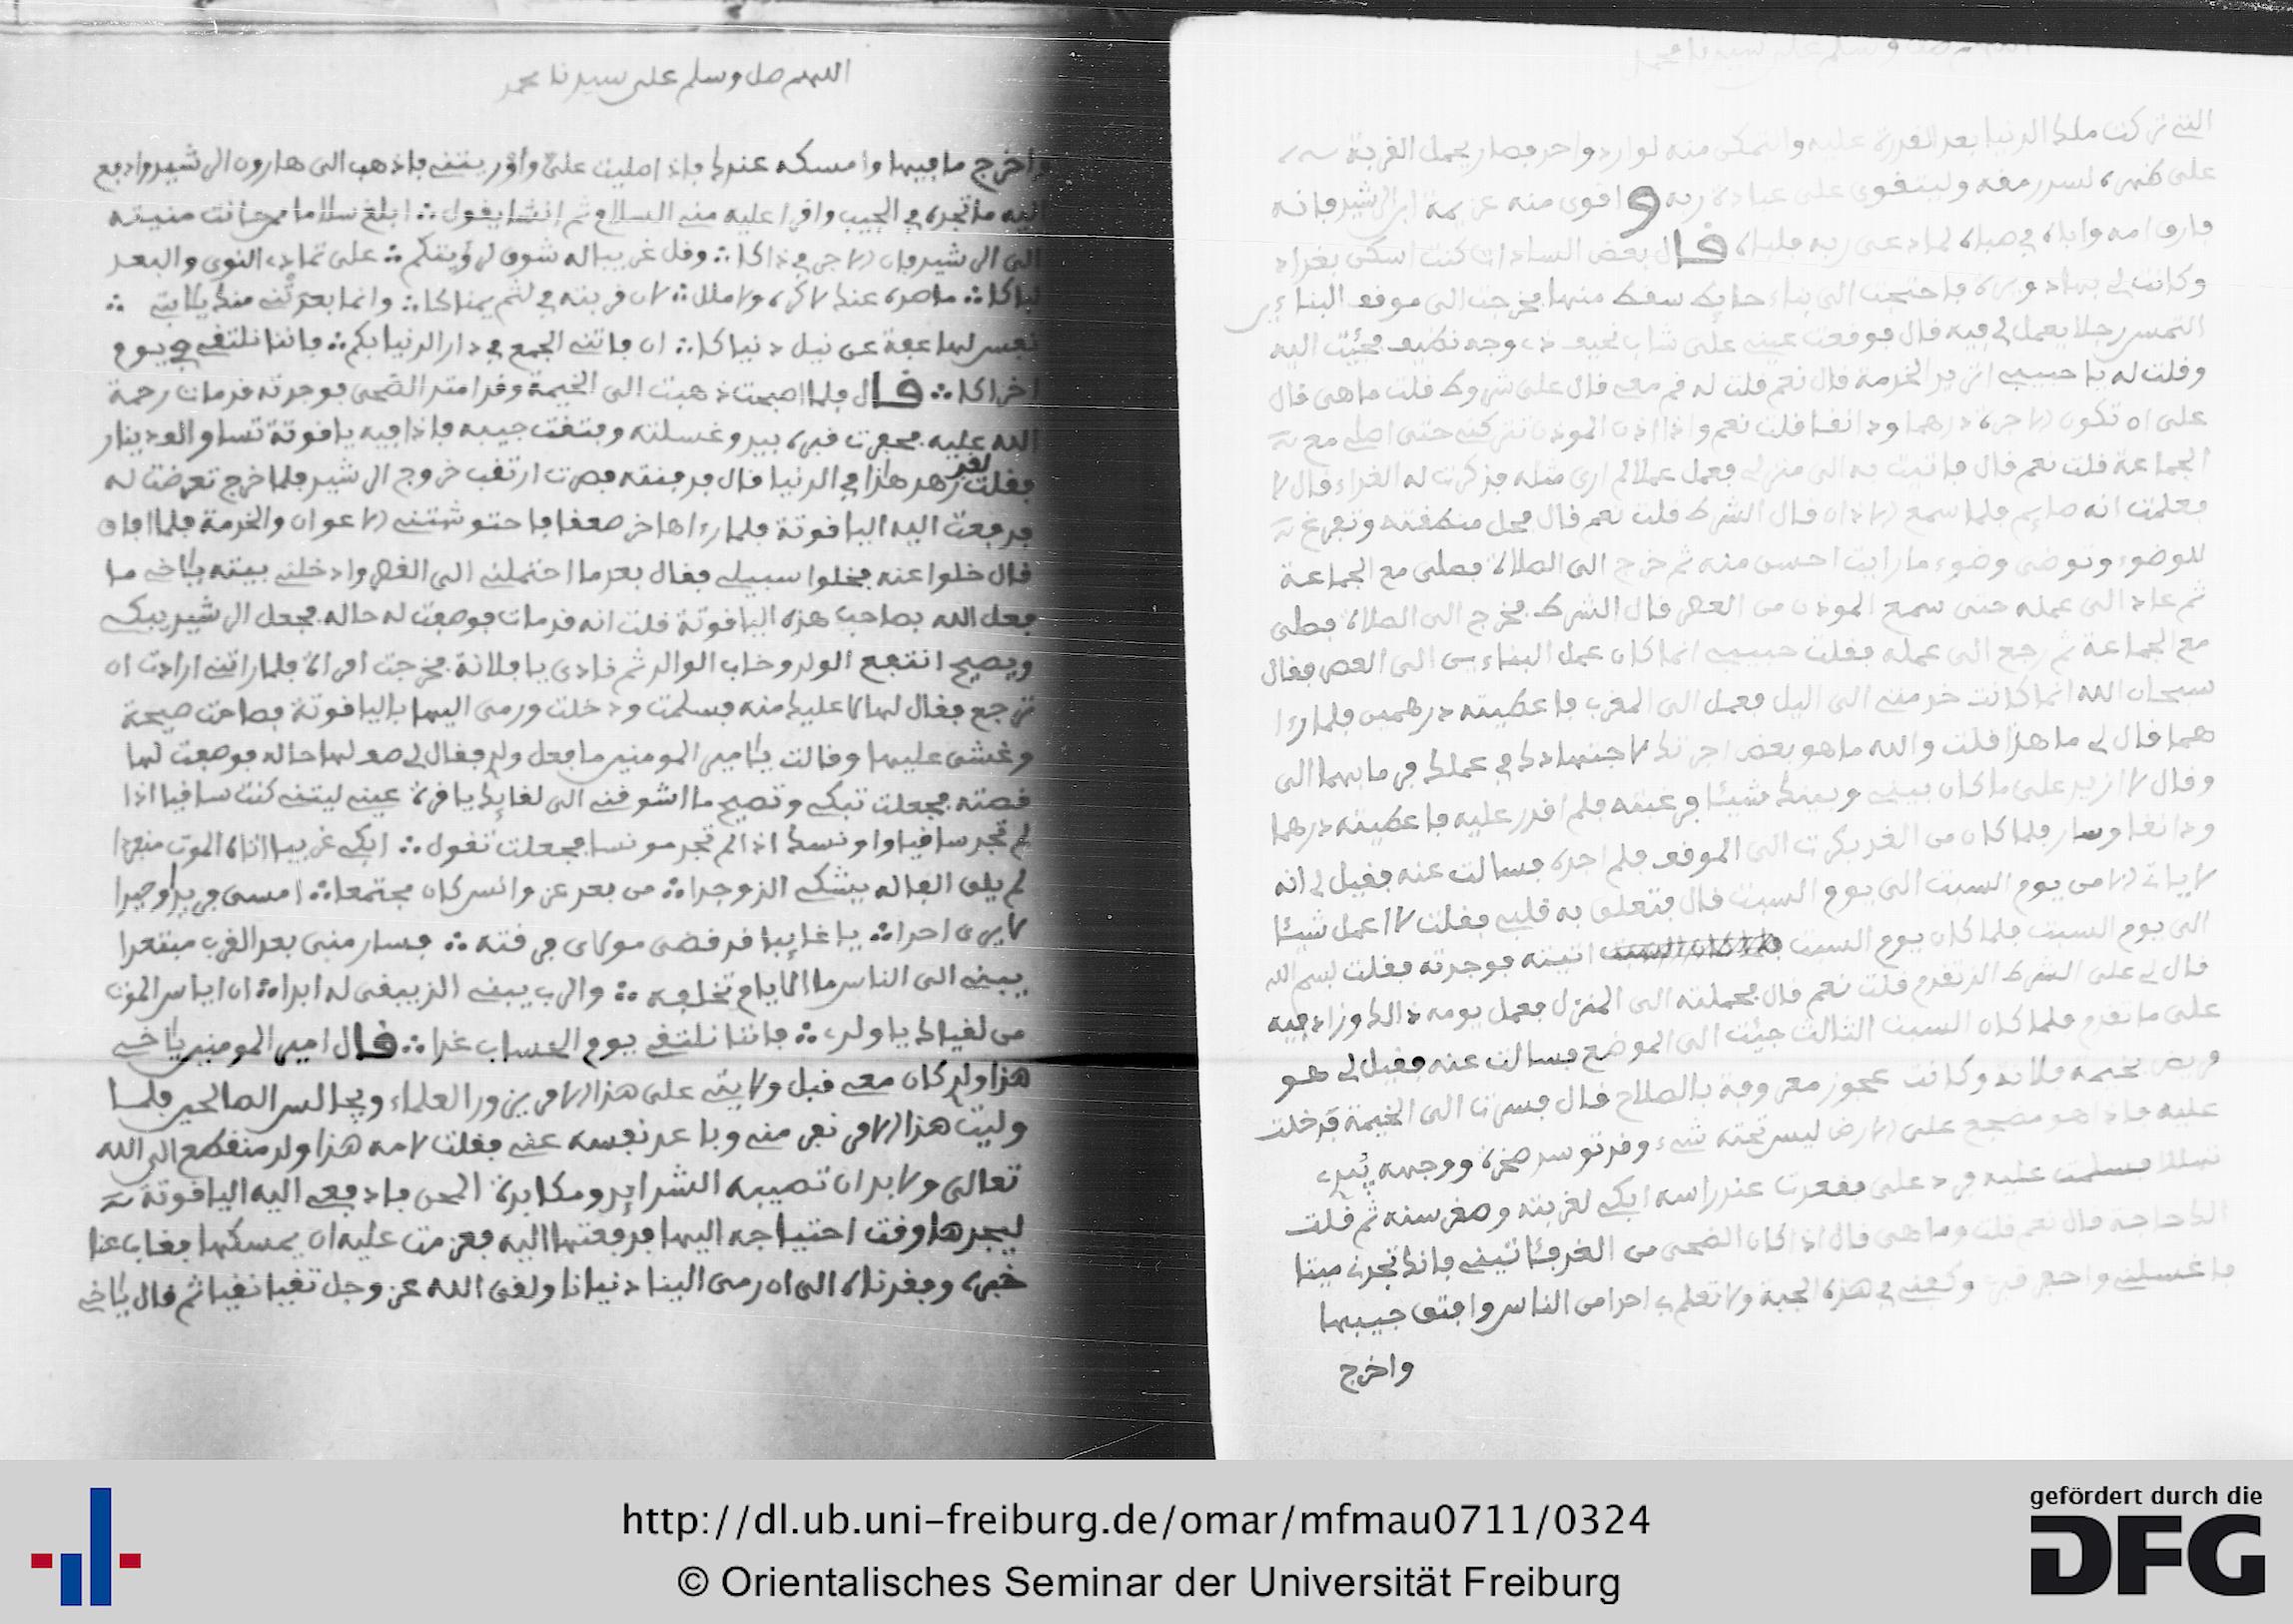 التي تركت ملك الدنيا بعد القدرة عليه والتمكن منه لوارد واحد فصار يحمل القربة
على ظهره لسد رمقه وليتقوى على عبادة ربه واقوى منه عزيمة ابن الرشيد فانه
فارق امه واباه في صباه لما دعى ربه فلباه قال بعض السادات كنت اسكن بغداد
وكانت لي بها دويرة فاحتجت الى بناء حايط سقط منها فخرجت الى موقف البناءين
التمس رجلا يعمل لي فيه قال فوقعت عيني على شاب نحيف ذي وجه نظيف فجئت اليه
وقلت له يا حبيبي اتريد الخدمة قال نعم قلت له قم معي قال على شروط قلت ما هي قال
على ان تكون الاجرة درهما ودانقا قلت نعم واذا اذن الموذن تتركني حتى اصلي مع
الجماعة قلت نعم قال فاتيت به الى منزلي فعمل عملا لم ار مثله فذكرت له الغداء قال لا
فعلمت انه صايم فلما سمع الاذان قال الشرط قلت نعم قال فحل منطقته وتفرغ
للوضوء وتوضى وضوء ما رايت احسن منه ثم خرج الى الصلاة فصلى مع الجماعة
ثم عاد الى عمله حتى سمع الموذن من العصر قال الشرط فخرج الى الصلاة فصلى
مع الجماعة ثم رجع الى عمله فقلت حبيبي انما كان عمل البناءين الى العصر فقال
سبحان الله انما كانت خدمتي الى اليل فعمل الى المغرب فاعطيته درهمين فلما رءا
هما قال لي ما هذا قلت والله ما هو بعض اجرتك لاجتهادك في عملك فرما بهما الي
وقال لا ازيد على ما كان بيني وبينك شيئا فرغبته فلم اقدر عليه فاعطيته درهما
ودانقا وسار فلما كان من الغد بكرت الى الموقف فلم اجده فسالت عنه فقيل لي انه
لا ياتي الا من يوم السبت الى يوم السبت قال فتعلق به قلبي فقلت لا اعمل شيئا
الى يوم السبت فلما كان يوم السبت اتيته فوجدته فقلت بسم الله
قال لي على الشرط الذ تقدم قلت نعم قال فحملته الى المنزل فعمل يومه ذالك وزاد فيه
على ما تقدم فلما كان السبت الثالث جيئت الى الموضع فسالت عنه فقيل لي هو
مريض بخيمة فلانة وكانت عجوز معروفة بالصلاح قال فسرنا الى الخيمة فدخلت
عليه فاذا هو مضجع على الارض ليس تحته شيء وقد توسد صخرة ووجهه
فسلمت عليه فرد علي فقعدت عند راسه ابكي لغربته وصغر سنه ثم قلت
الك حاجة قال نعم قلت وما هي قال اذا كان الضحى من الغد فتاتيني فانك تجدني ميتا
فاغسلني واحفر قبري وكفني في هذه الجبة ولا تعلم بي احدا من الناس وافتق جيبها
واخرج
اللهم صل وسلم على سيدنا محمد
واخرج ما فيها وامسكه عندك فاذا صليت علي واوريتني فاذهب الى هارون الرشيد وادفع
اليه ما تجده في الجيب واقرا عليه مني السلام ثم انشا يقول ∴ ابلغ سلاما من حانت منيته
الى الرشيد فان الاجر في ذاكا ∴ وقل غريب له شوق لرؤيتكم ∴ على تمادي النوى والبعد
لباكا ∴ ما صده عنك لا كره ولا ملل ∴ لان قربته في لثم يمناكا ∴ وانما بعدتني منك يا ابتي ∴
نفس لها عفة عن نيل دنياكا ∴ ان فاتني الجمع في دار الدنيا بكم ∴ فاننا نلتقي في يوم
اخراكا ∴ قال فلما اصبحت ذهبت الى الخيمة وقد امتد الضحى فوجدته قد مات رحمة
الله عليه فحفرت قبره بيدي وغسلته وفتقت جيبه فاذا فيه ياقوتة تساو الف دينار
فقلت لقد زهد هاذا في الدنيا قال فدفنته فصرت ارتقب خروج الرشيد فلما خرج تعرضت له
فدفعت اليه الياقوتة فلما رءاها خر صعقا فاحتوشتني الاعوان والخدمة فلما افاق
قال خلوا عنه فخلوا سبيلي فقال بعد ما احتملني الى القصر وادخلني بيته يا اخي ما
فعل الله بصاحب هذه الياقوتة قلت انه قد مات فوصفت له حاله فجعل الرشيد يبكي
ويصيح انتفع الولد وخاب الوالد ثم نادى يا فلانة فخرجت امراة فلما راتني ارادت ان
ترجع فقال لها لا عليك منه فسلمت ودخلت ورمى اليها بالياقوتة فصاحت صيحة
وغشى عليها وقالت يا امير المومنين ما فعل ولدي فقال لي صف لها حاله فوصفت لها
قصته فجعلت تبكي وتصيح ما اشوقني الى لقايك يا قرة عيني ليتني كنت ساقيا اذا
لم تجد ساقيا واونسك اذا لم تجد مونسا فجعلت تقول ∴ ابكي غريبا اتاه الموت منفردا
لم يلق الفا له يشكي الذ وجدا ∴ من بعد عز وانس كان مجتمعا ∴ امسى فريدا وحيدا
لا يرى احدا ∴ يا غايبا قد قضى مولاي فرقته ∴ فسار مني بعد القرب مبتعدا
يبني الى الناس ما الايام تخلفه ∴ والرب يبني الذ يبقى له ابدا ∴ ان اياس الموت
من لقياك يا ولدي ∴ فاننا نلتقي يوم الحساب غدا ∴ قال امير المومنين يا اخي
هذا ولدي كان معي قبل ولايتي على هذا الامر يزور العلماء ويجالس الصالحين فلما
وليت هذا الامر نفر مني وباعد نفسه عني فقلت لامه هذا ولد منقطع الى الله
تعالى ولا بد ان تصيبه الشدايد ومكابدة المحن فادفعي اليه الياقوتة
ليجدها وقت احتياجه اليها فدفعتها اليه فعزمت عليه ان يمسكها فغاب عنا
خبره وفقدناه الى ان رمى الينا دنيانا ولقى الله عز وجل تقيا نقيا ثم قال يا اخي
http://dl.ub.uni-freiburg.de/omar/mfmau0711/0324
© Orientalisches Seminar der Universität Freiburg
gefördert durch die
DFG